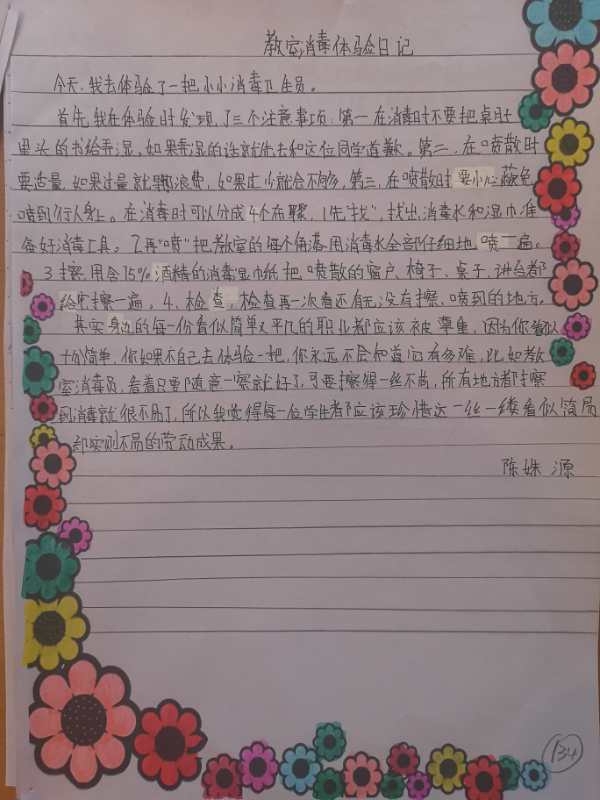 教室消毒体验日记
今天,我去体验了一把小小消毒卫生员。
首先,我在体验时发现,了三个注意事项,第一在消毒时不要把桌肚
里头的书给弄湿,如果弄湿的话就先去和这位同学道歉。第二,在喷散时
要适量,如果过量就浪费,如果太少就会不够,第三,在喷散时要小心,避免
喷到行人身上。在消毒时可以分成4个布骤,1先"找",找出消毒水和湿巾准
备好消毒工具。2再"喷"把教室的每个角落用消毒水全部仔细地喷一遍。
3擦,用含75%酒精的消毒湿巾纸把喷散的窗户、椅子、桌子、讲台都
给擦一遍。4、检查,检查再一次看还有没有擦、喷到的地方。
其实身边的每一份看似简单又平凡的职业都应该被尊重,因为你看似
十分简单,你如果不自己去体验一把,你永远不会知道它有多难,比如教
室消毒员,看着只要随意一擦就好了,可要擦得一丝不苟,所有地方都擦
到消毒就很不易了,所以我觉得每一位学生都应该珍惜这一丝一缕看似简易
却实则不易的劳动成果。
陈姝源
134